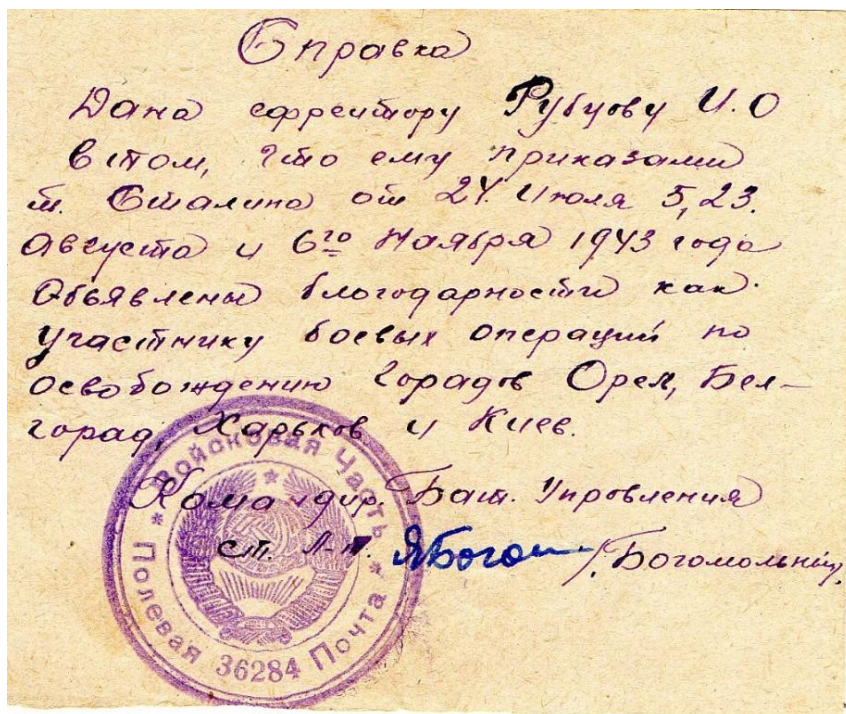 Справка
Дана ефрейтору Рубцову И.О
в том, что ему приказами
т. Сталина от 24. Июля 5, 23.
Августа и 6го Наября 1943 года
Объявлены благодарности как
участнику боевых операций по
освобождению горадов Орел, Бел-
горад, Харьков и Киев.
Командир Бат. Упровления
ст. л-т. ЯБогом /Богомольниц.
* Войсковая Часть *
Полевая Почта
36284